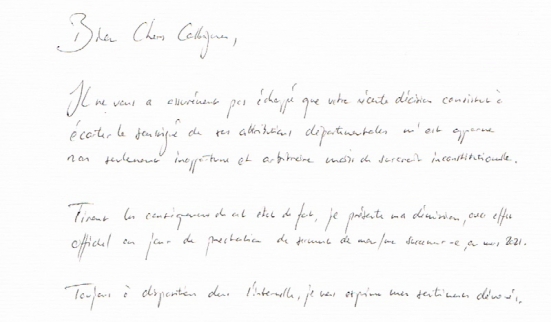 Bien Chers Collègues,
Il ne vous a assurément pas échappé que votre récente décision consistant à
écarter le soussigné de ses attributions départementales m'est apparue
non seulement inopportune et arbitraire mais de surcroît inconstitutionnelle.
Tirant les conséquences de cet état de fait, je présente ma démission, avec effet
officiel au jour de prestation de serment de mon/ma successeur-e, en mars 2021.
Toujours à disposition dans l'intervalle, je vous exprime mes sentiments dévoués.